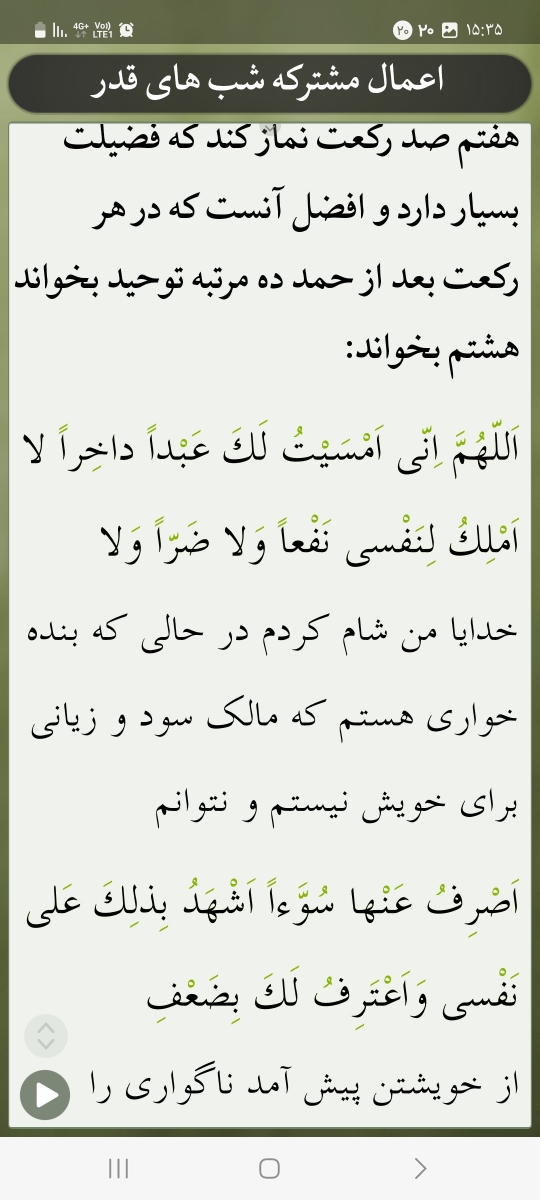 ۱۵:۳۵ ۲۰ ۲۰ Vo)) LTE1 4G+
اعمال مشترکه شب های قدر
هفتم صد رکعت نماز کند که فضیلت
بسیار دارد و افضل آنست که در هر
رکعت بعد از حمد ده مرتبه توحید بخواند
هشتم بخواند:
اَللّهُمَّ اِنّی اَمْسَیْتُ لَکَ عَبْداً داخِراً لا
اَمْلِکُ لِنَفْسی نَفْعاً وَلا ضَرّاً وَلا
خدایا من شام کردم در حالی که بنده
خواری هستم که مالک سود و زیانی
برای خویش نیستم و نتوانم
اَصْرِفُ عَنْها سُوَّءاً اَشْهَدُ بِذلِکَ عَلی
نَفْسی وَاَعْتَرِفُ لَکَ بِضَعْفِ
از خویشتن پیش آمد ناگواری را